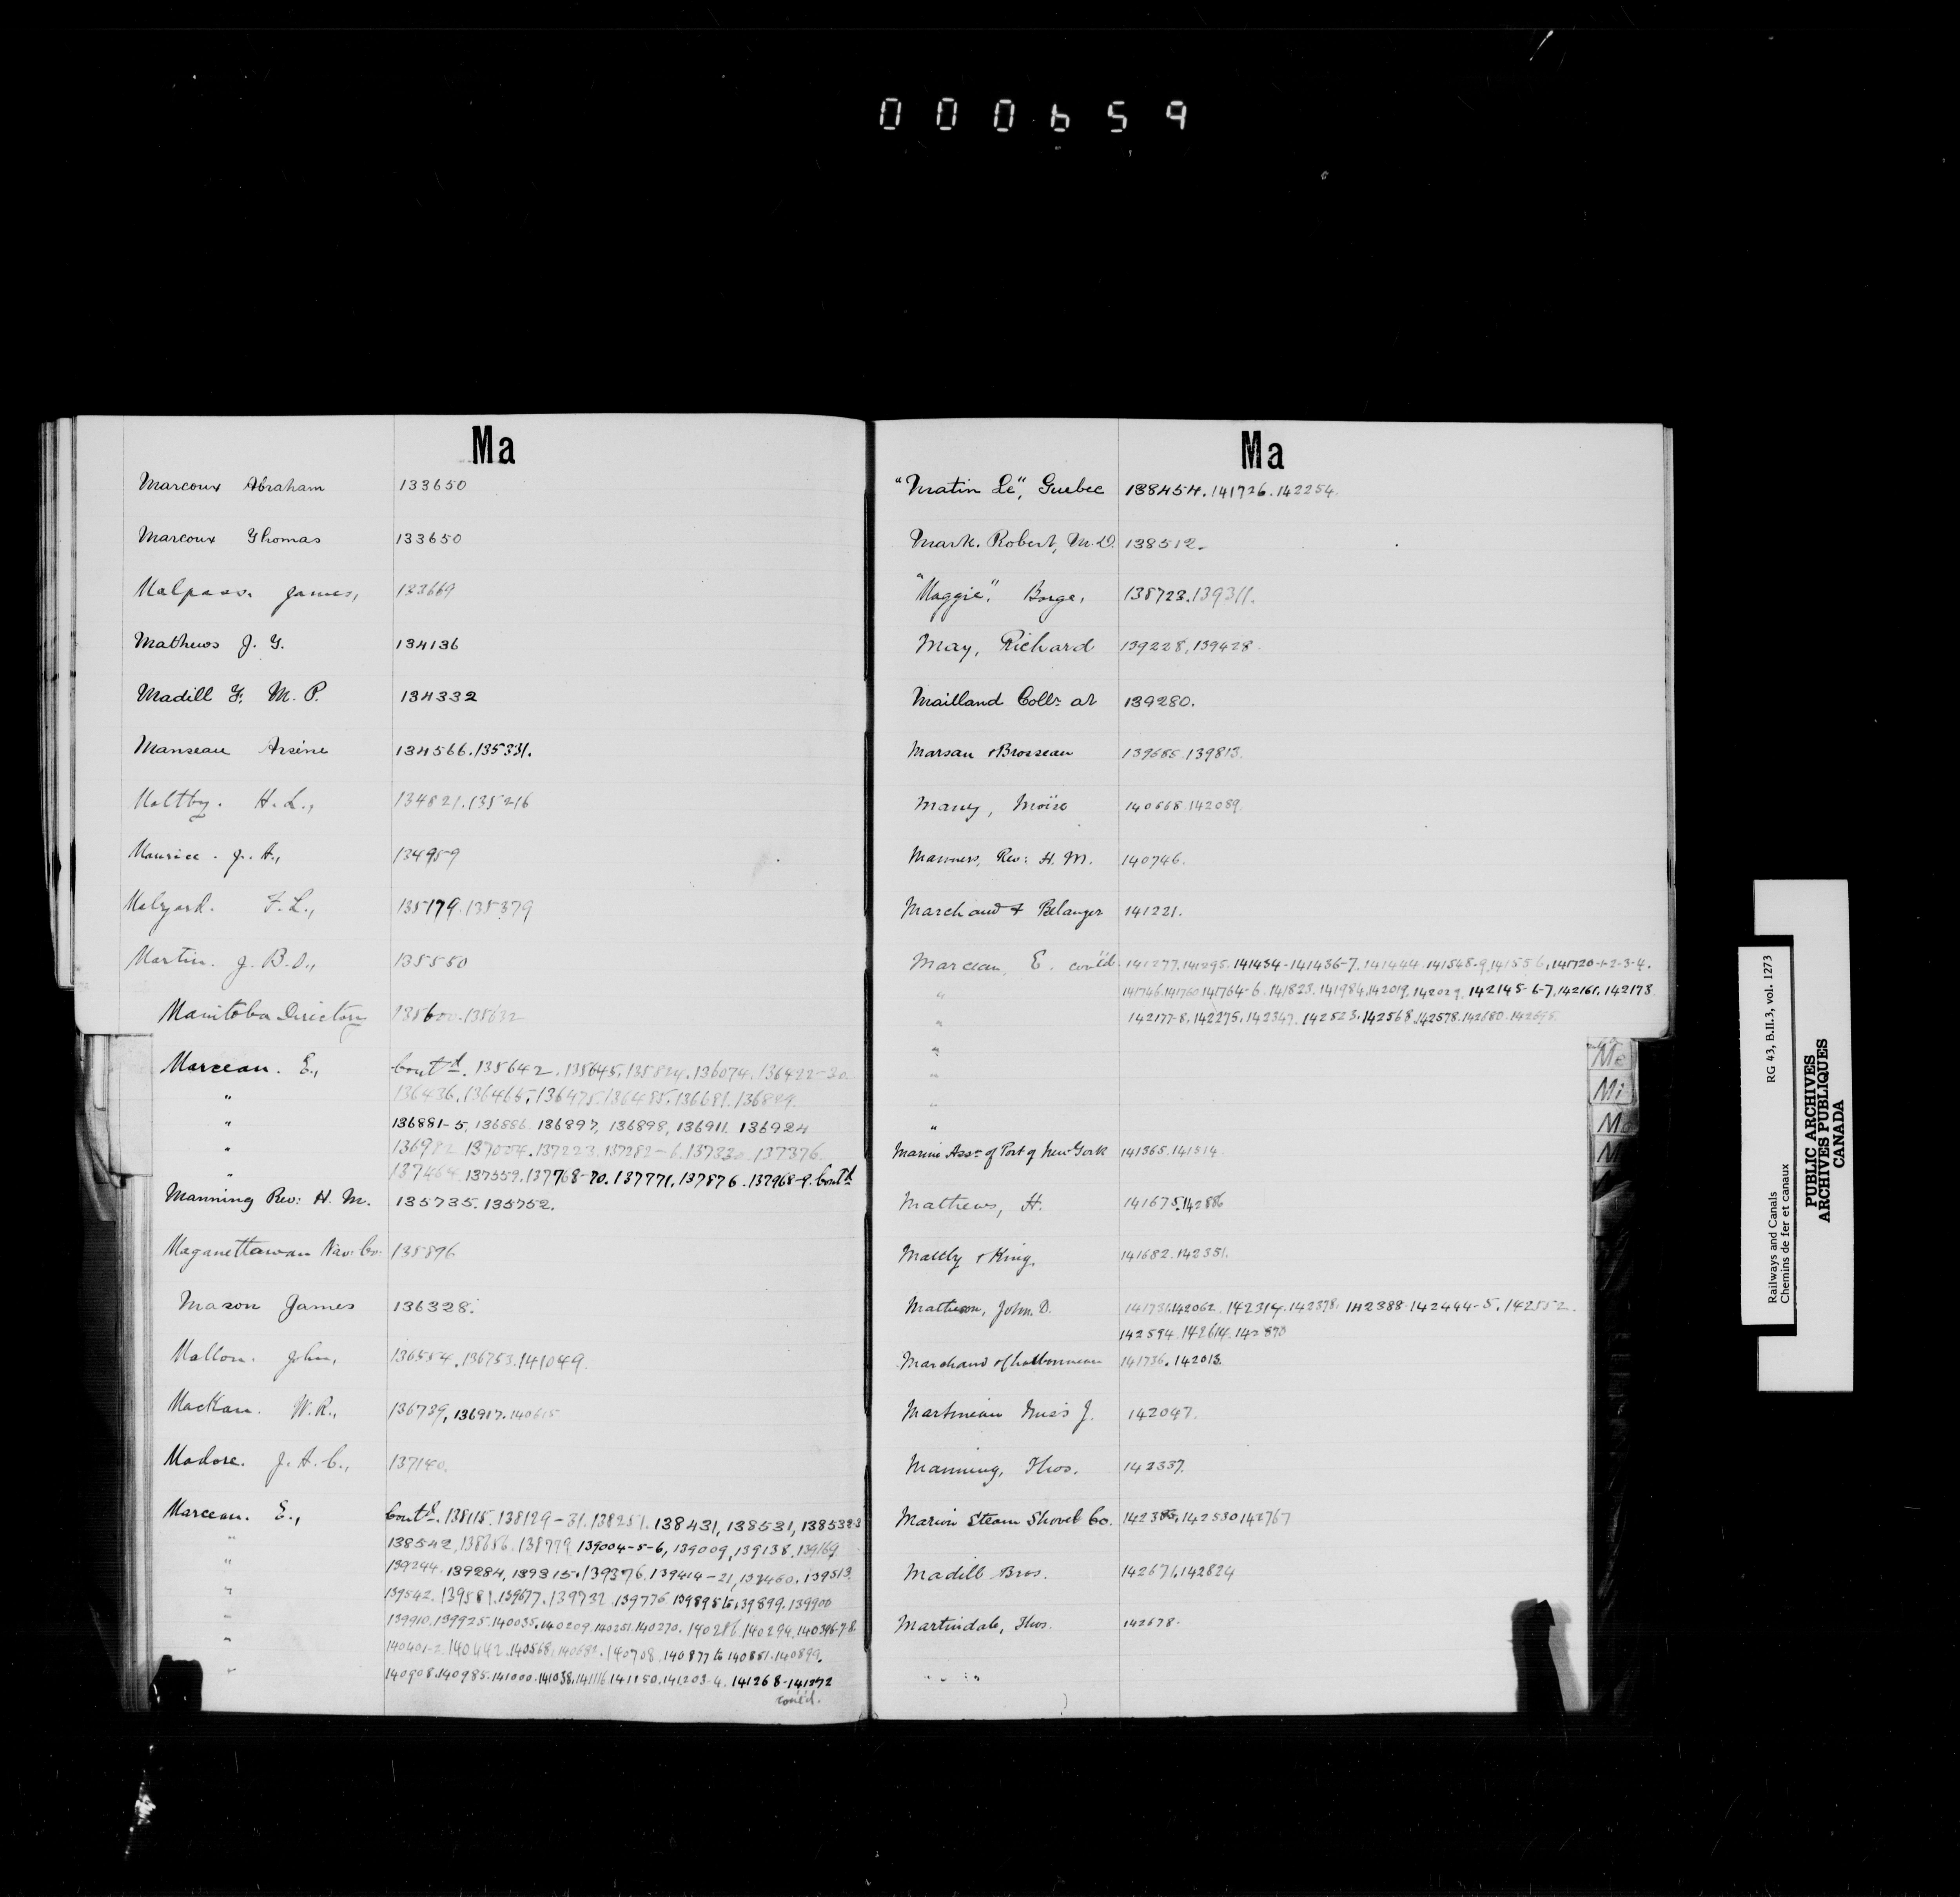 000659
Ma
Marcoux Abraham 133650
Marcoux Thomas 133650
Malpass. James, 133669
Mathews J. G. 134136
Madill F. M. P. 134332
Manseau Arsène 134566.135331.
Maltby. H. L., 134821.135216
Maurice. J. A., 134959
Malyard. F. L., 135179.135379
Martin. J. B. D., 135550
Manitoba Directory 135600.135632
Marceau. E., Cont'd. 135642.135645.135824.136074.136422-30.
" 136436.136465.136475.136485.136681.136829.
" 136881-5, 136886. 136897, 136898, 136911. 136924
" 136982.137004.137223.137282-6.137330.137376.
" 137464.137559.137768-70.137771.137876.137968-9. Cont'd
Manning Rev: H. M. 135735.135752.
Maganettawan Nav: Co. 135896
Mason James 136328.
Mallon. John, 136554.136753.141049.
MacKan. W. R., 136739, 136917.140615
Madore. J. A. C., 137140.
Marceau. E., Cont'd. 138115.138129-31.138251.138431, 138531, 138532-3
" 138542.138656.138779.139004-5-6, 139009, 139138.139169.
" 139244.139284, 139315.139376.139414-21, 139460.139513.
" 139542.139581.139677.139732.139776.139895 to 139899.139900
" 139910.139925.140035.140209.140251.140270.140286.140294.140396-7-8.
" 140401-2.140442.140568.140682.140708.140877 to 140881.140899.
" 140908.140985.141000.141038.141116.141150.141203-4.141268-141272
cont'd.
Ma
"Matin Le", Quebec 138454.141726.142254.
Mark. Robert, M.D. 138512.
"Maggie". Barge, 138723.139311.
May, Richard 139228.139428.
Maitland Collr. at 139280.
Marsan & Brosseau 139685.139813.
Many, Moïse 140668.142089.
Manners, Rev: H. M. 140746.
Marchand & Belanger 141221.
Marceau, E. cont'd 141277.141295.141434-141436-7.141444.141548-9.141556.141720-1-2-3-4.
" 141746.141760.141764-6.141823.141984.142019.142029.142145-6-7.142161.142173.
" 142177-8.142275.142347.142523.142568.142578.142680.142695.
"
"
"
"
Marine Assn. of Port of New York 141365.141514.
Mathews, H. 141675.142886
Maltby & King, 141682.142351.
Matheson, John. D. 141731.142062.142314.142378.142388.142444-5.142552.
142594.142614.142890
Marchand & Charbonneau 141736.142013.
Martineau Miss J. 142047.
Manning, Thos. 142337.
Marion Steam Shovel Co. 142530.142767
Madill Bros. 142671.142824
Martindale, Thos. 142678.
Me
Mi
M
M
Railways and Canals RG 43, B.II.3, vol. 1273
Chemins de fer et canaux
PUBLIC ARCHIVES
ARCHIVES PUBLIQUES
CANADA